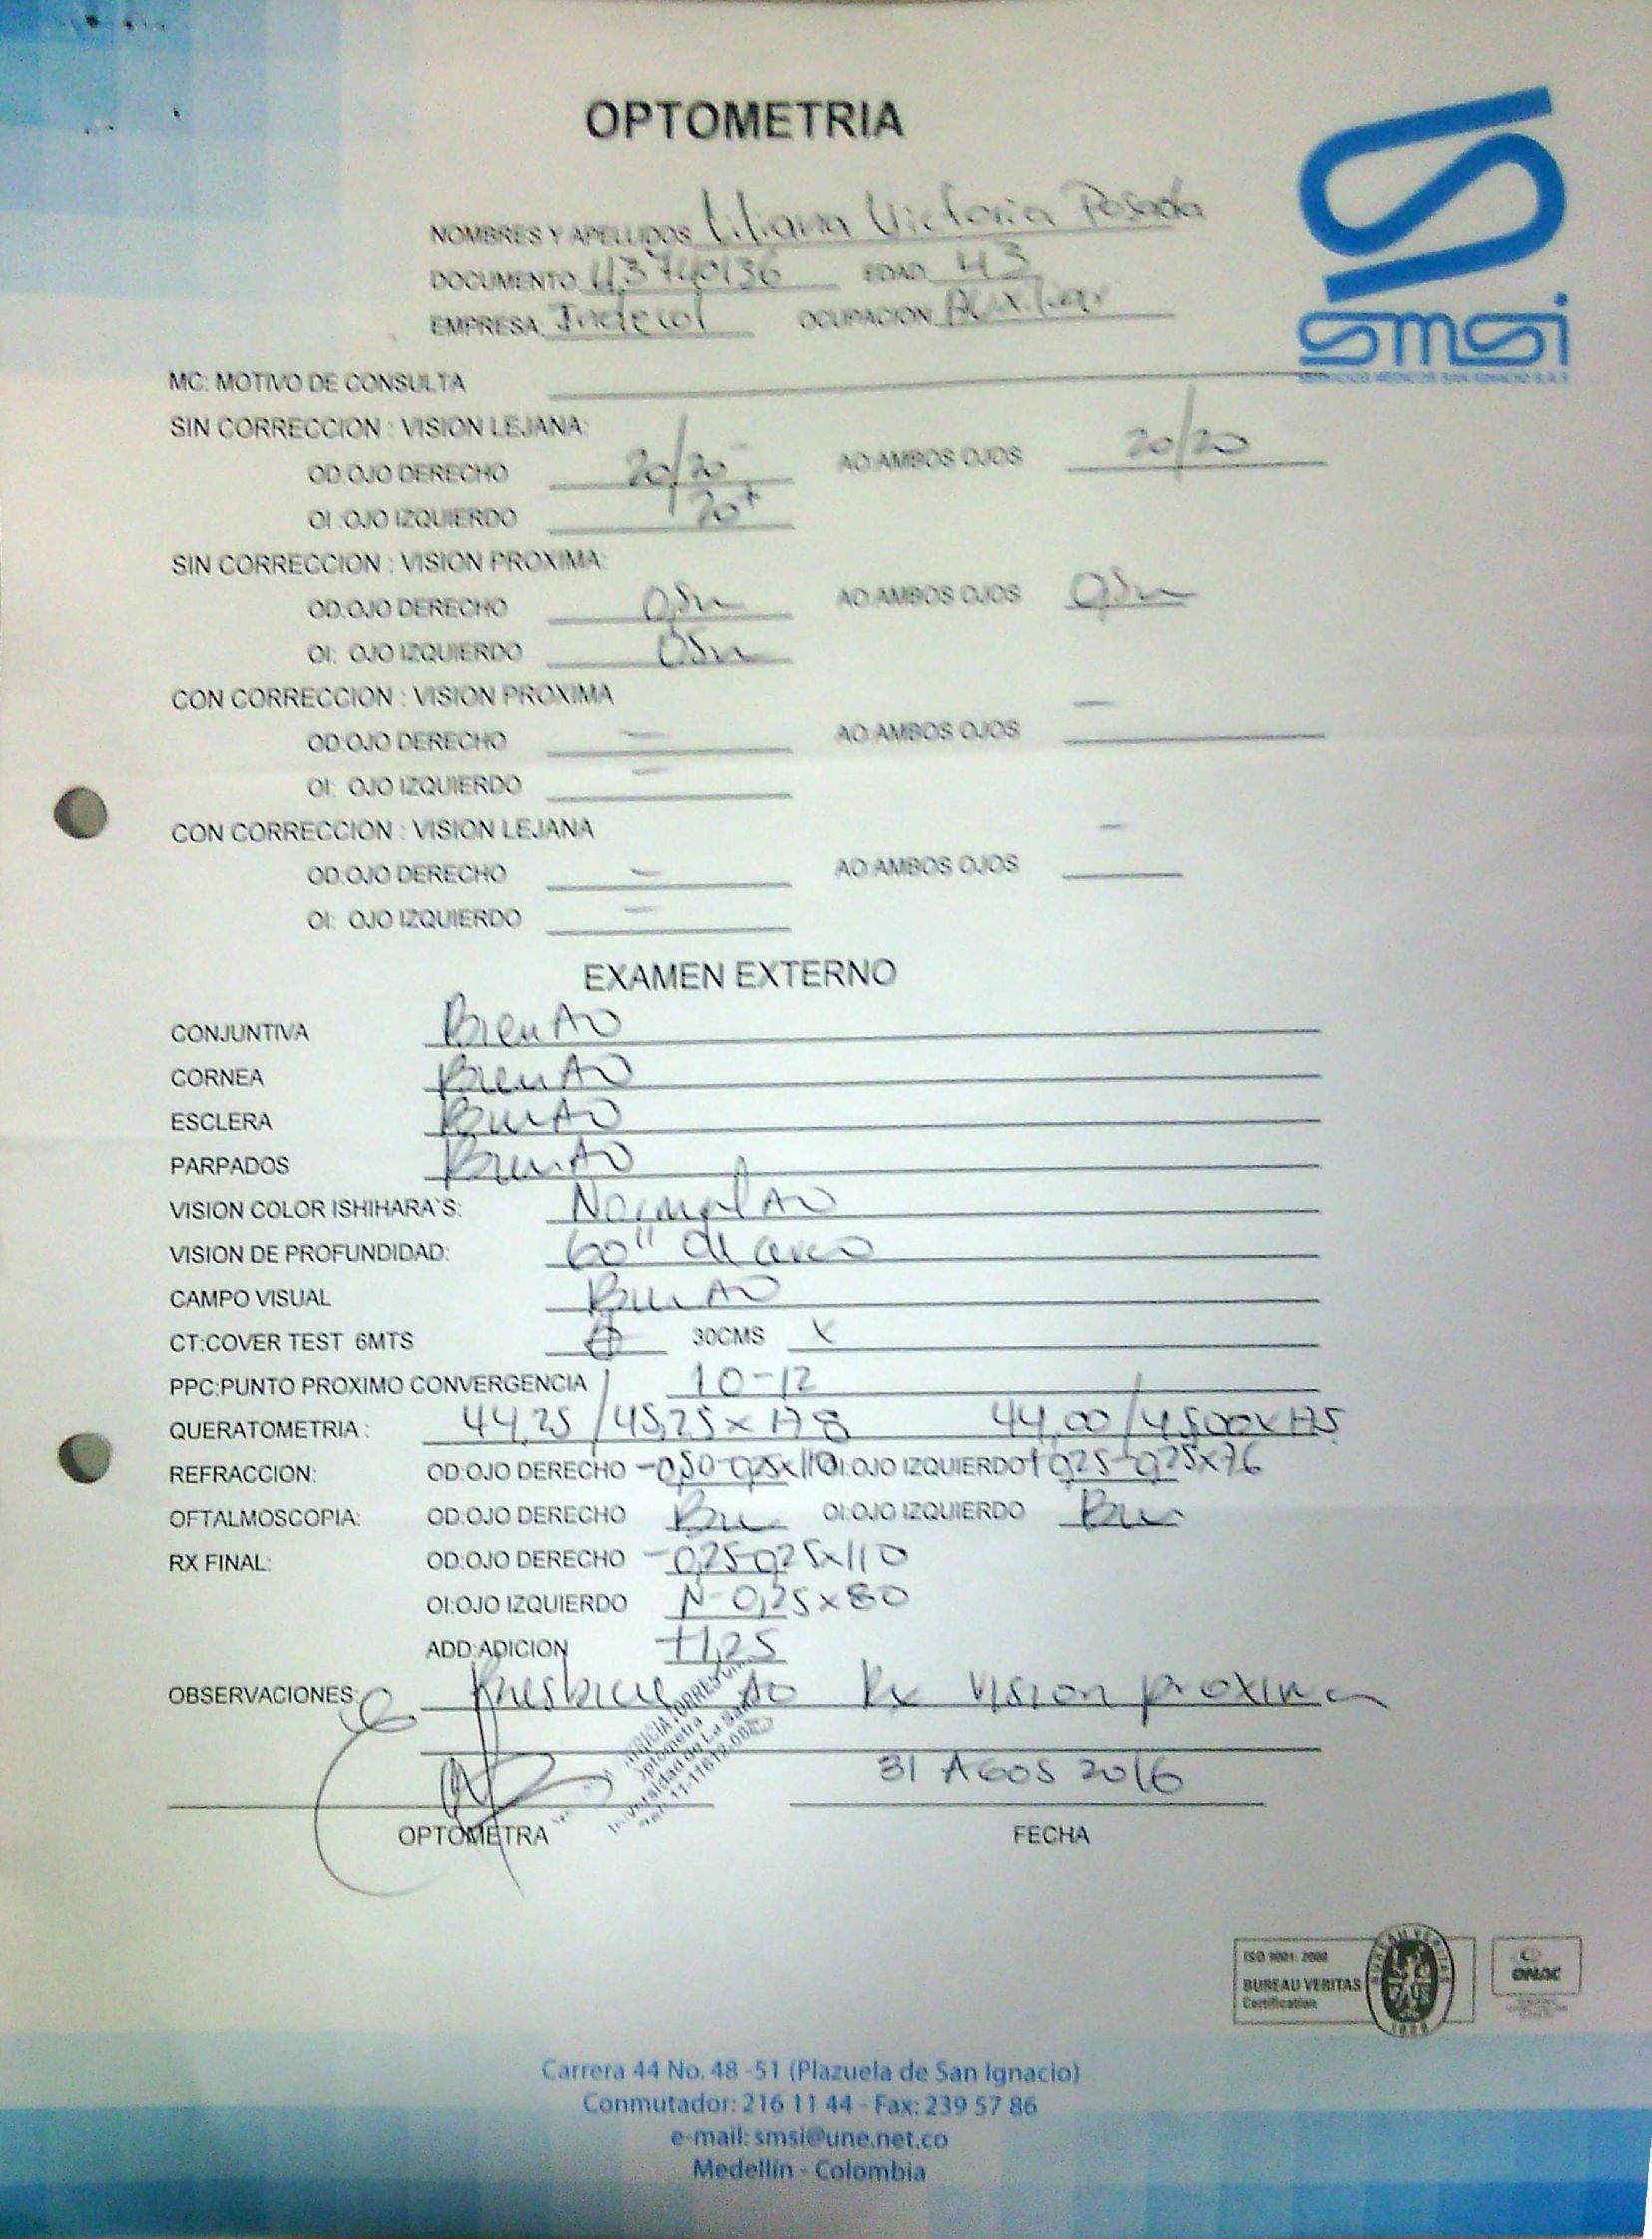 OPTOMETRIA
NOMBRES Y APELLIDOS Liliana Victoria Posada
DOCUMENTO: 43740136 EDAD 43
EMPRESA: Indecol OCUPACION: Auxiliar
smsi
SERVICIOS MEDICOS SAN IGNACIO S.A.S
MC: MOTIVO DE CONSULTA
SIN CORRECCION : VISION LEJANA:
OD:OJO DERECHO 20/20- AO:AMBOS OJOS 20/20
OI :OJO IZQUIERDO 20+
SIN CORRECCION : VISION PROXIMA:
OD:OJO DERECHO AO:AMBOS OJOS
OI: OJO IZQUIERDO
CON CORRECCION : VISION PROXIMA
OD:OJO DERECHO - AO:AMBOS OJOS -
OI: OJO IZQUIERDO -
CON CORRECCION : VISION LEJANA
OD:OJO DERECHO - AO:AMBOS OJOS -
OI: OJO IZQUIERDO -
EXAMEN EXTERNO
CONJUNTIVA Bien AO
CORNEA Bien AO
ESCLERA Bien AO
PARPADOS Bien AO
VISION COLOR ISHIHARA`S: Normal AO
VISION DE PROFUNDIDAD: 60" de arco
CAMPO VISUAL Bien AO
CT:COVER TEST 6MTS 30CMS X
PPC:PUNTO PROXIMO CONVERGENCIA 10-12
QUERATOMETRIA : 44,25/45,25x178 44,00/45,00x175
REFRACCION: OD:OJO DERECHO -0,50-0,25x110 OI:OJO IZQUIERDO +0,25-0,25x76
OFTALMOSCOPIA: OD:OJO DERECHO Bien OI:OJO IZQUIERDO Bien
RX FINAL: OD:OJO DERECHO -0,25-0,25x110
OI:OJO IZQUIERDO N-0,25x80
ADD:ADICION +1,25
OBSERVACIONES: Presbicie AO Rx Vision proxima
Optometra
Universidad de La Salle
31 AGOS 2016
OPTOMETRA FECHA
ISO 9001: 2008
BUREAU VERITAS
Certification
BUREAU VERITAS
1828
ONAC
Carrera 44 No. 48 -51 (Plazuela de San Ignacio)
Conmutador: 216 11 44 - Fax: 239 57 86
e-mail: smsi@une.net.co
Medellín - Colombia